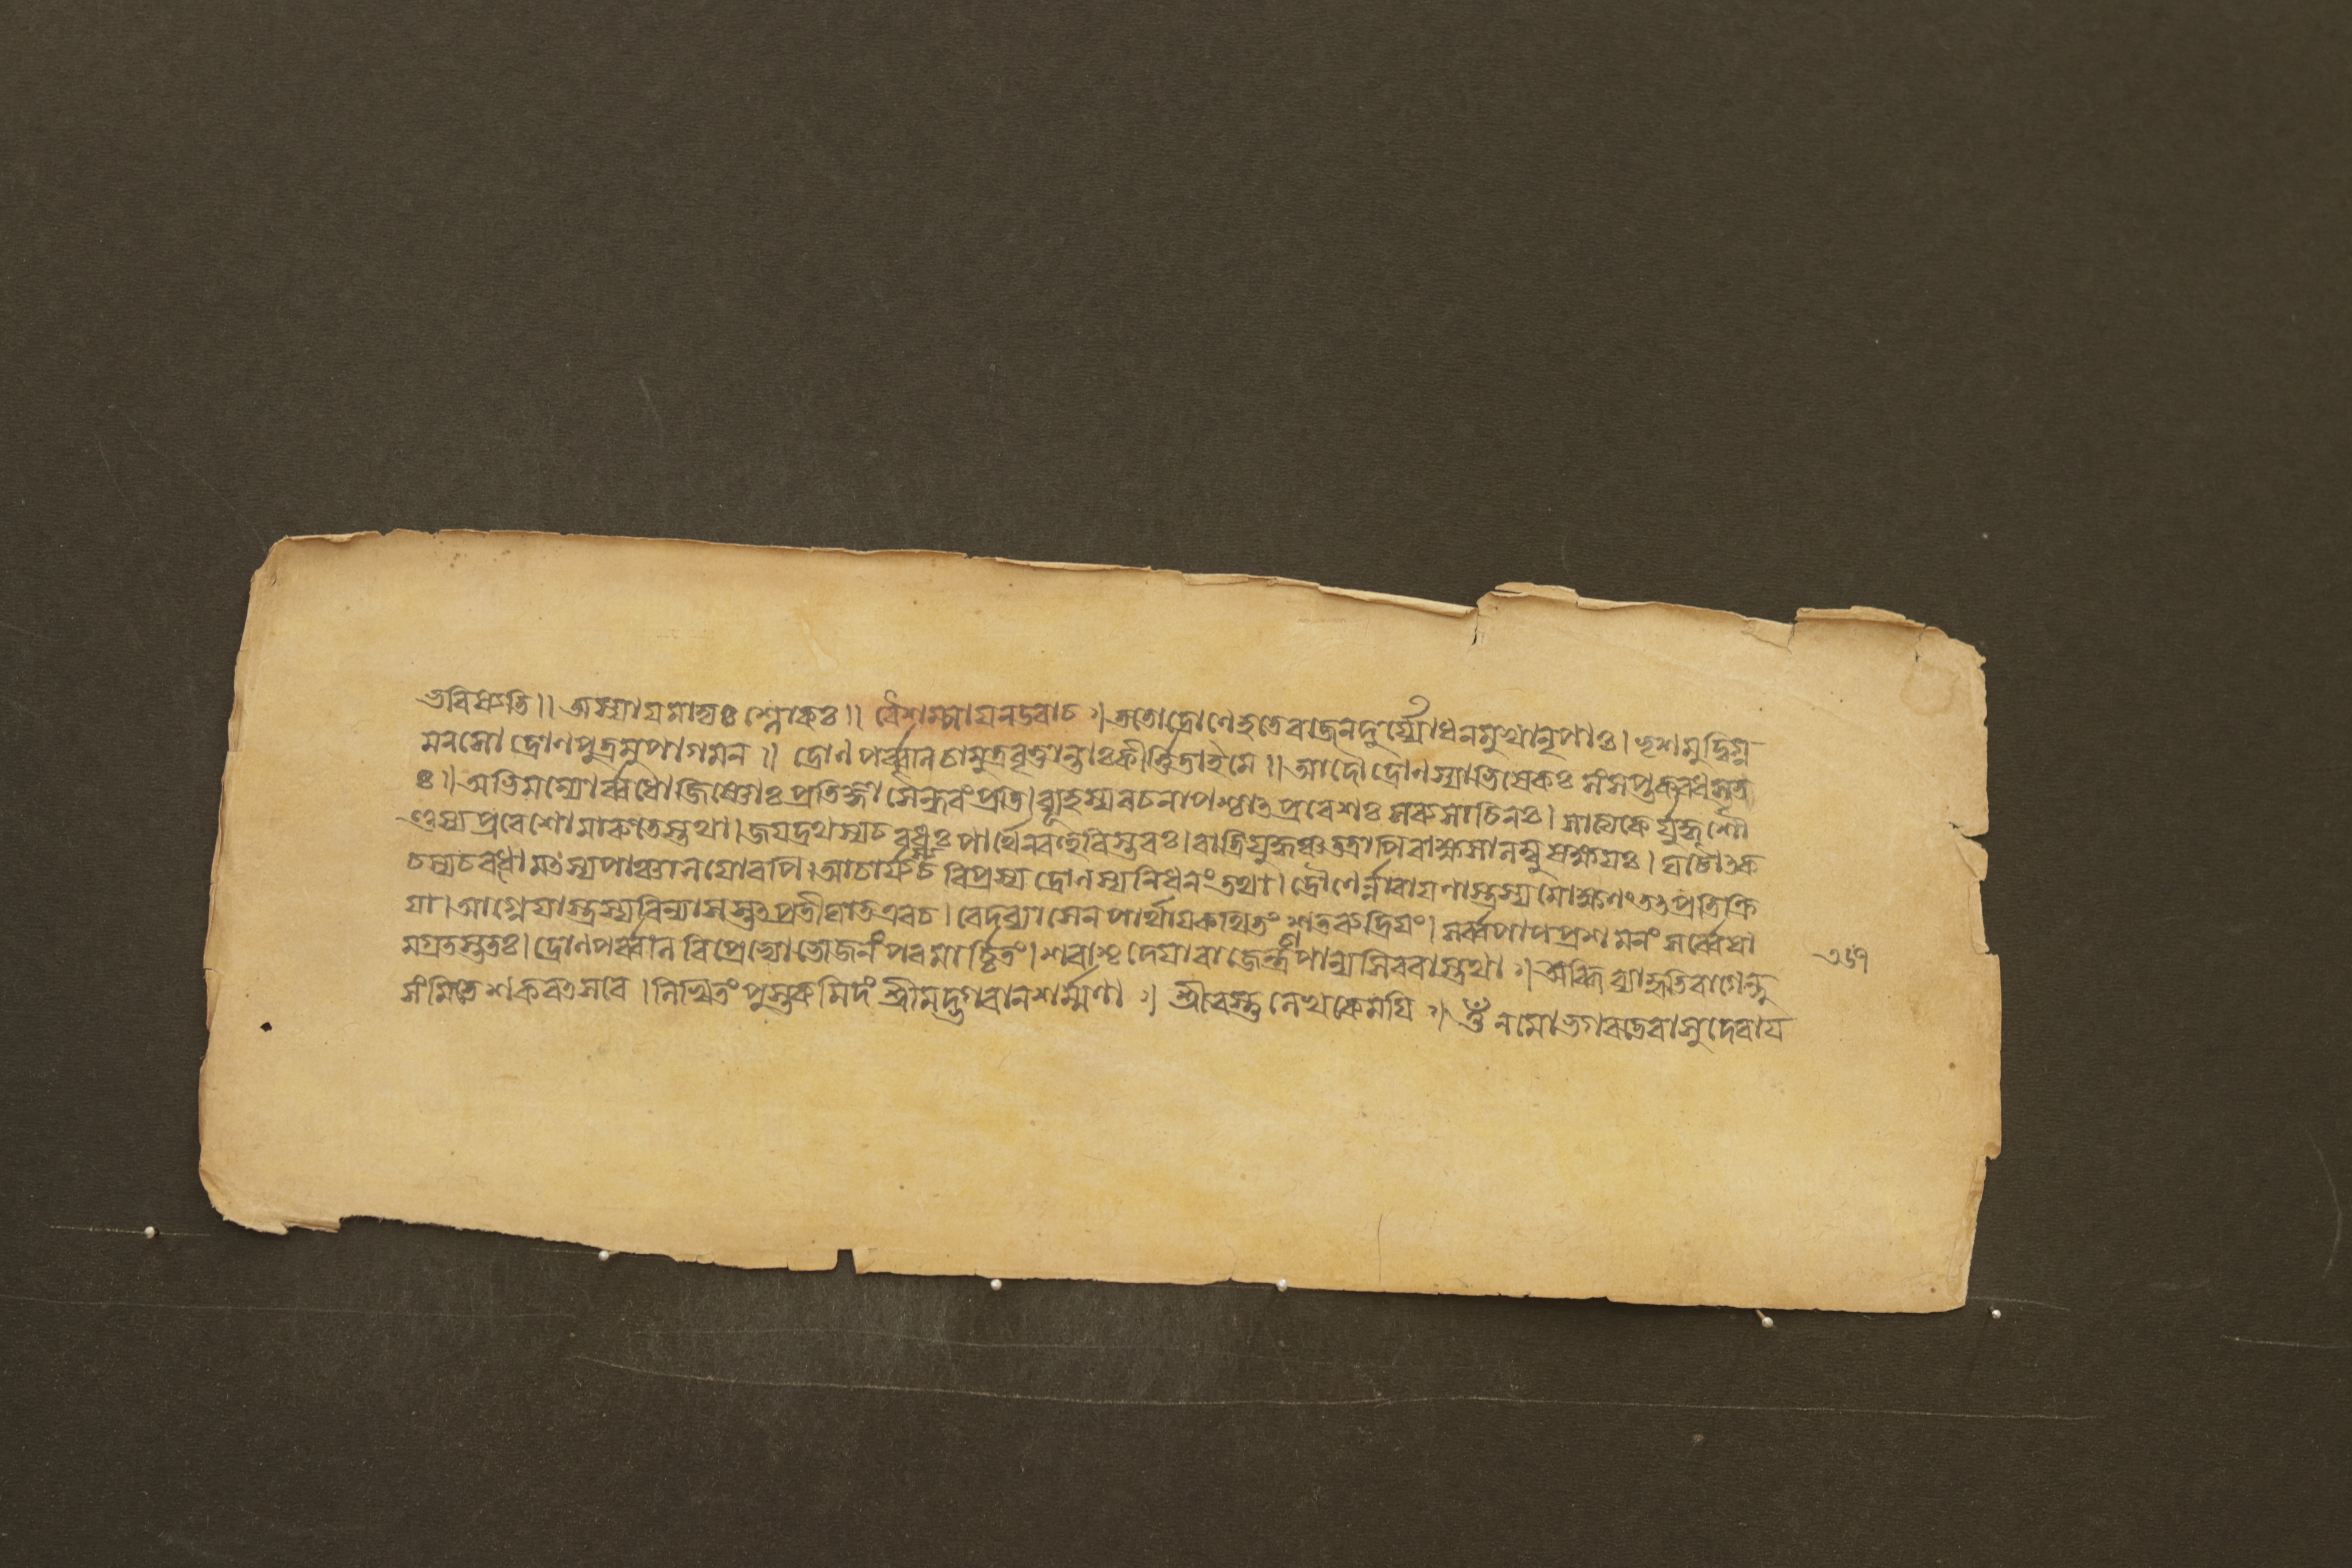 ভবিষ্যতি ॥ অস্যায়মাদ্যঃ শ্লোকঃ ॥ বৈশম্পায়নউবাচ ॥ ততোদ্রোণেহতেরাজন্দুর্য্যোধনমুখানৃপাঃ । ভৃশমুদ্বিগ্ন
মনসো দ্রোণপুত্রমুপাগমন ॥ দ্রোণপর্ব্বণি চামুত্রবৃত্তান্তাঃকীর্ত্তিতাইমে ॥ আদৌ দ্রোণস্যাভিষেকঃ সংসপ্তকবধস্তত
ঃ ॥ অভিমন্যোর্ব্বধোজিষ্ণোঃ প্রতিজ্ঞা সৈন্ধবংপ্রতি । ব্যূহস্যরচনাপশ্চাৎপ্রবেশঃ সব্যসাচিনঃ । সাত্যকে র্যুদ্ধশৌ
ণ্ডস্যপ্রবেশোমারুতেস্তথা । জয়দ্রথস্যচ বধঃ পার্থেন বিস্তরঃ । রাত্রিযুদ্ধঞ্চতত্রাপিরাক্ষসানাম্বুসক্ষয়ঃ । ঘটোৎক
চস্যচবধো মৎস্যপাঞ্চালয়োরপি । আচার্য্যস্য বিপ্রস্য দ্রোণস্যনিধনংতথা । দ্রৌণের্ন্নারায়ণাস্ত্রস্যমোক্ষণংতৎপ্রতিক্রি
য়া । আগ্নেয়াস্ত্রস্যবিন্যাসস্তৎপ্রতীঘাতএবচ । বেদব্যাসেনপার্থায়কথিতং শতরুদ্রিয়ং । সর্ব্বপাপপ্রশমনং সর্ব্বেষা
মগ্রতস্ততঃ । দ্রোণপর্ব্বণি বিপ্রেভ্যোভোজনংপরমার্চ্চিতং । শরাশ্চ দেয়ারাজেন্দ্রচাপান্যসিবরাস্তথা ॥ অব্ধি ব্যাহৃতিবাণেন্দু
সংমিতে শকবৎসরে । লিখিতং পুস্তকমিদং শ্রীমদ্ভগবানশর্ম্মণা ॥ শ্রীরস্তু লেখকেময়ি ॥ ওঁ নমোভগবতেবাসুদেবায়